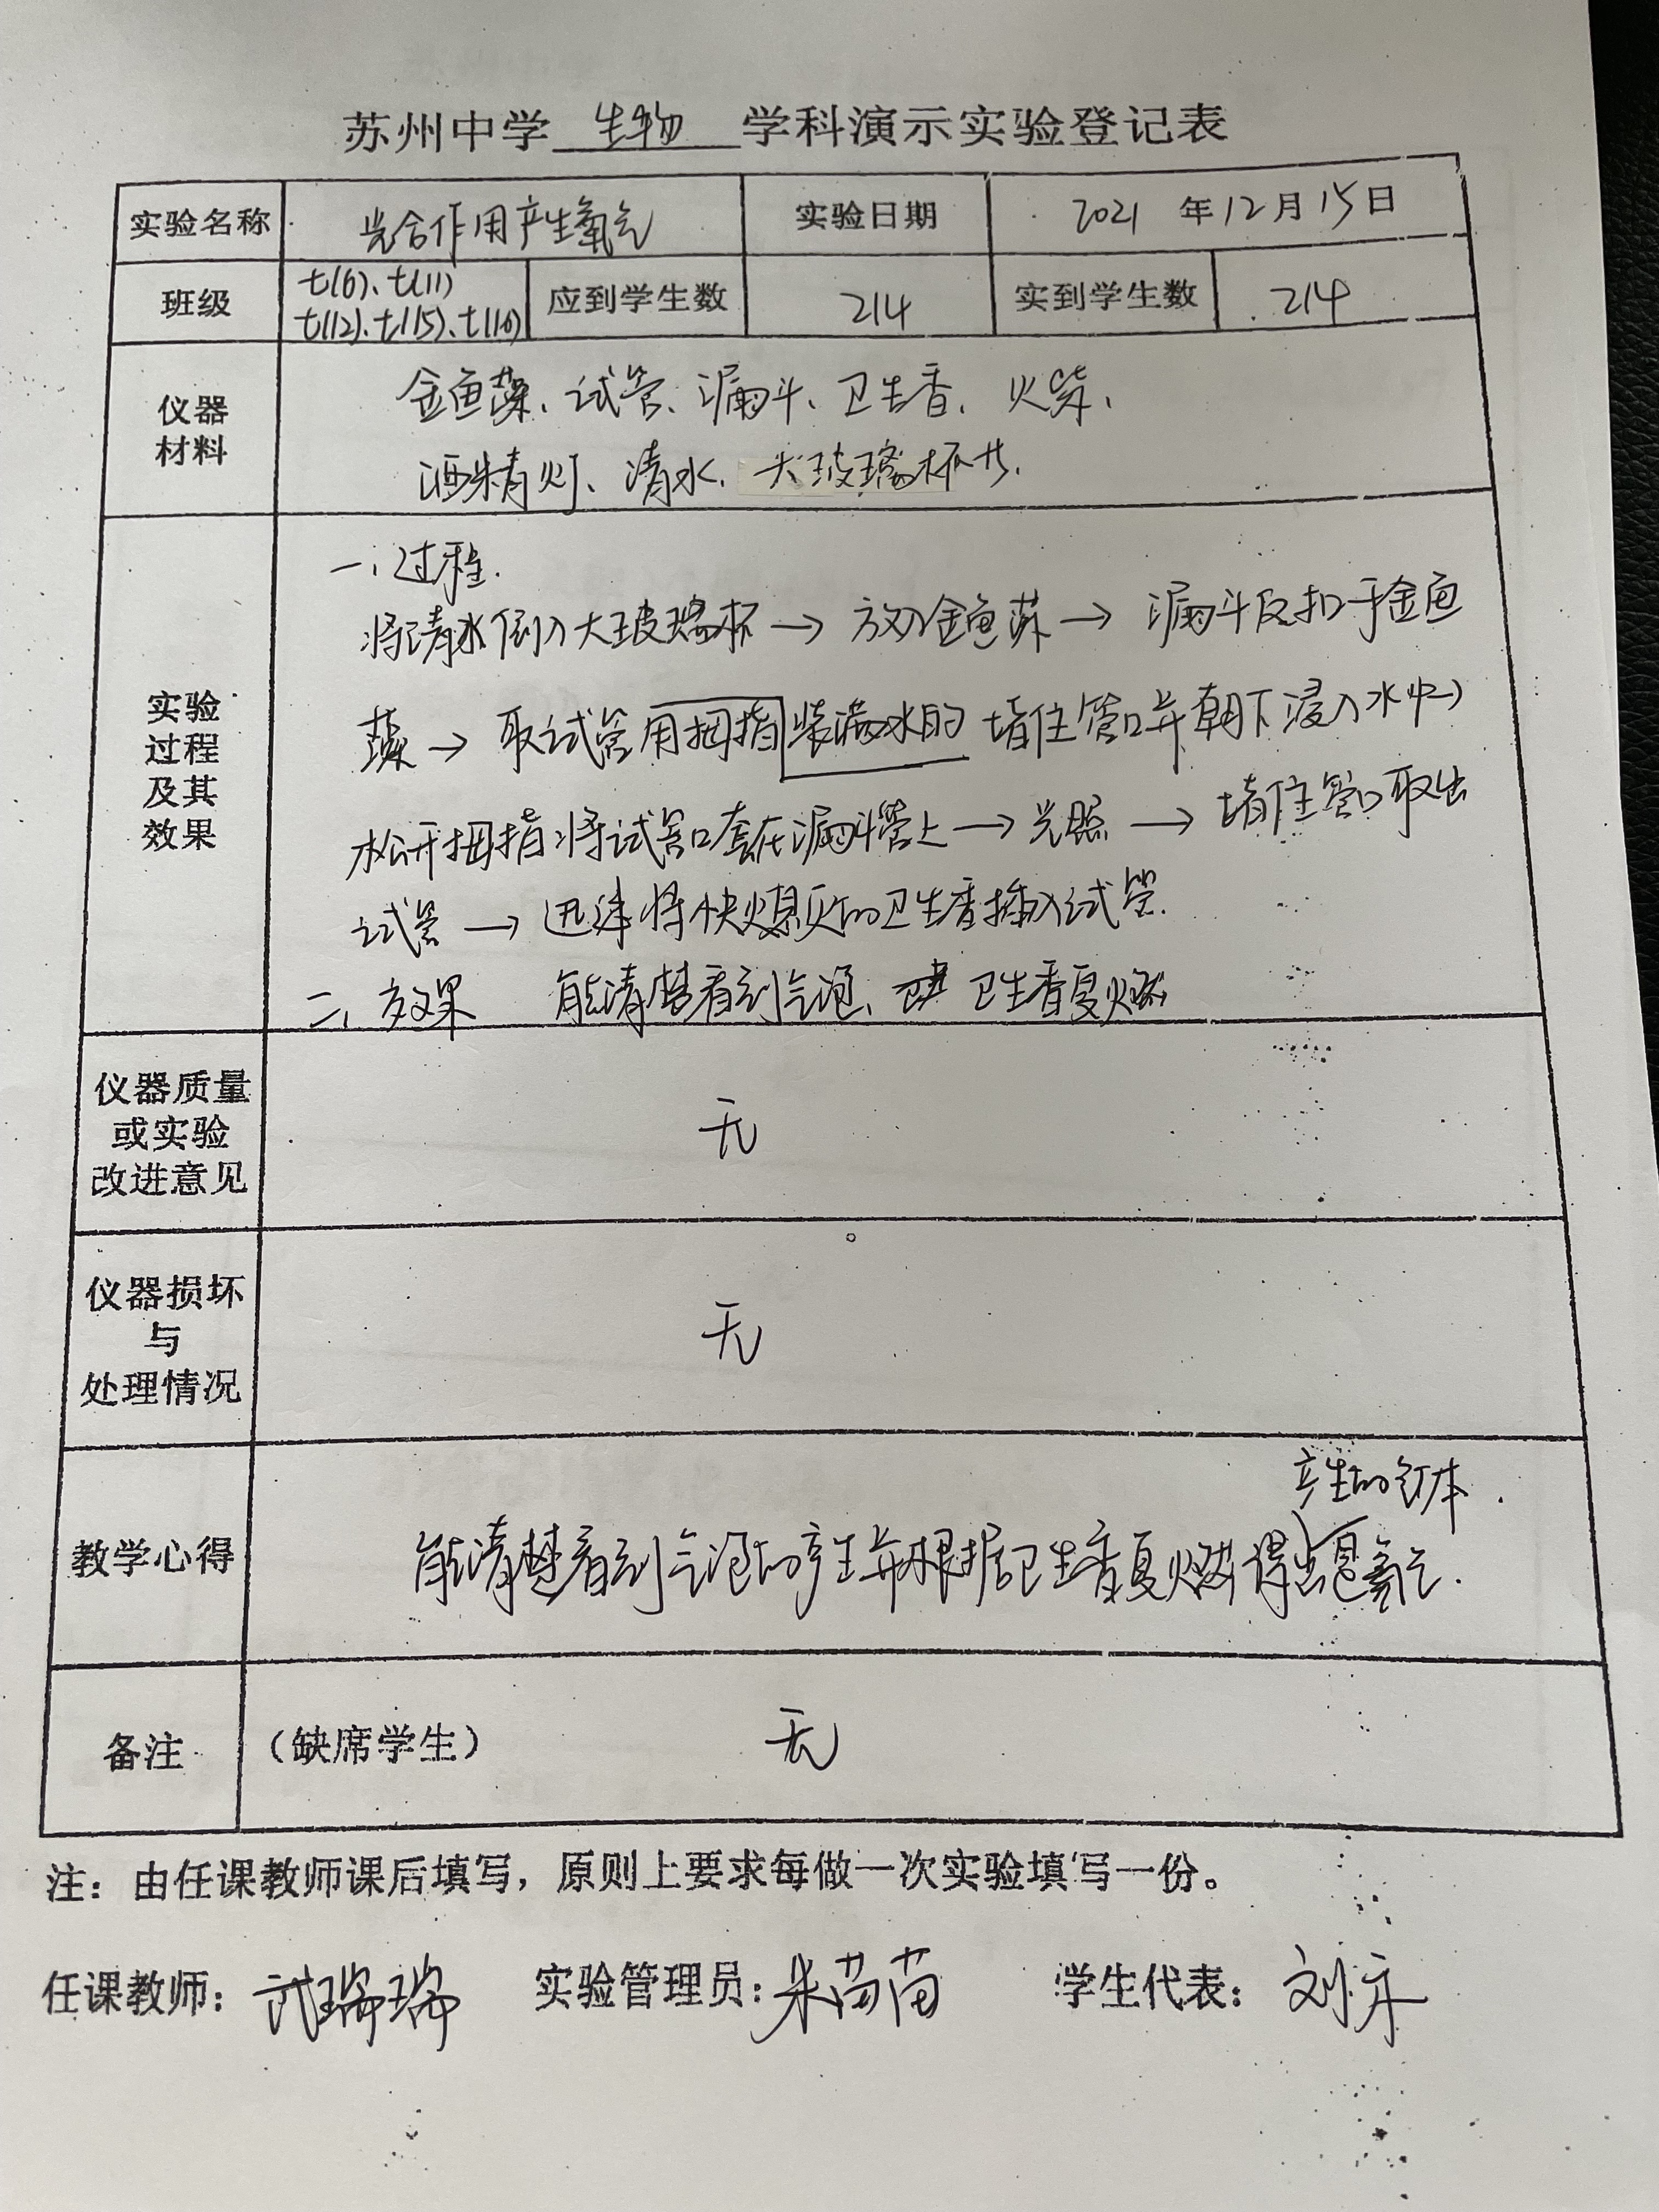 苏州中学 生物 学科演示实验登记表
实验名称 光合作用产生氧气 实验日期 2021 年 12 月 15 日
班级 七(6)、七(11) 七(12)、七(15)、七(16) 应到学生数 214 实到学生数 214
仪器
材料
金鱼藻、试管、漏斗、卫生香、火柴、
酒精灯、清水、大玻璃杯
实验
过程
及其
效果
一、过程.
将清水倒入大玻璃杯→放入金鱼藻→漏斗反扣于金鱼
藻→取试管用拇指装满水的堵住管口并朝下浸入水中→
松开拇指将试管口套在漏斗管上→光照→堵住管口取出
试管→迅速将快熄灭的卫生香插入试管.
二、效果 能清楚看到气泡、卫生香复燃
仪器质量
或实验
改进意见
无
仪器损坏
与
处理情况
无
教学心得
产生的气体
能清楚看到气泡的产生并根据卫生香复燃得出是氧气.
备注 (缺席学生) 无
注：由任课教师课后填写，原则上要求每做一次实验填写一份。
任课教师：武瑞瑞 实验管理员：朱苗苗 学生代表：刘